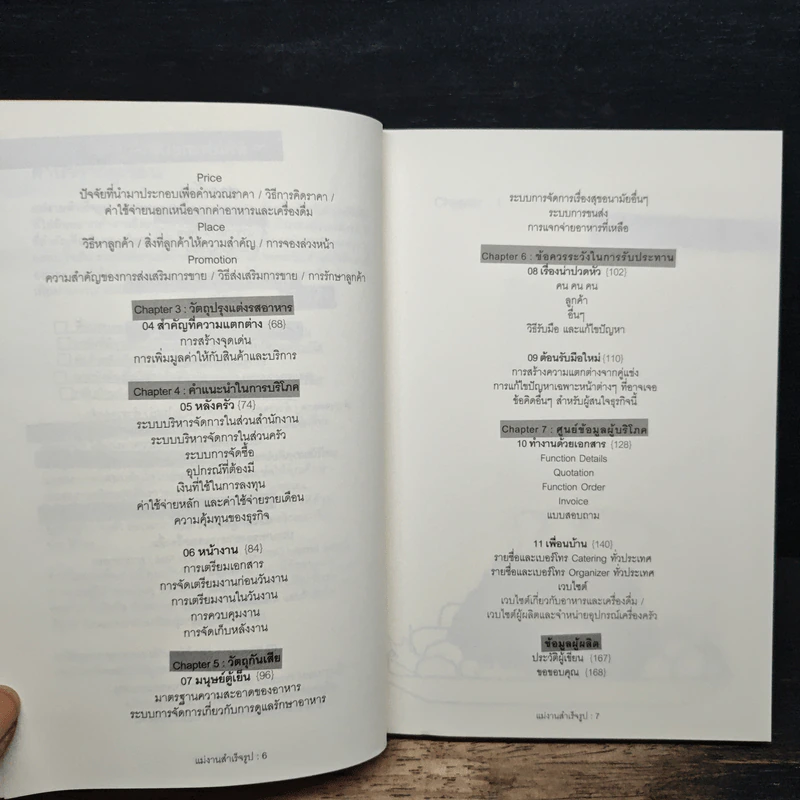 Price
ปัจจัยที่นำมาประกอบเพื่อคำนวณราคา / วิธีการคิดราคา /
ค่าใช้จ่ายนอกเหนือจากค่าอาหารและเครื่องดื่ม
Place
วิธีหาลูกค้า / สิ่งที่ลูกค้าให้ความสำคัญ / การจองล่วงหน้า
Promotion
ความสำคัญของการส่งเสริมการขาย / วิธีส่งเสริมการขาย / การรักษาลูกค้า
Chapter 3 : วัตถุปรุงแต่งรสอาหาร
04 สำคัญที่ความแตกต่าง {68}
การสร้างจุดเด่น
การเพิ่มมูลค่าให้กับสินค้าและบริการ
Chapter 4 : คำแนะนำในการบริโภค
05 หลังครัว {74}
ระบบบริหารจัดการในส่วนสำนักงาน
ระบบบริหารจัดการในส่วนครัว
ระบบการจัดซื้อ
อุปกรณ์ที่ต้องมี
เงินที่ใช้ในการลงทุน
ค่าใช้จ่ายหลัก และค่าใช้จ่ายรายเดือน
ความคุ้มทุนของธุรกิจ
06 หน้างาน {84}
การเตรียมเอกสาร
การจัดเตรียมงานก่อนวันงาน
การเตรียมงานในวันงาน
การควบคุมงาน
การจัดเก็บหลังงาน
Chapter 5 : วัตถุกันเสีย
07 มนุษย์ตู้เย็น {96}
มาตรฐานความสะอาดของอาหาร
ระบบการจัดการเกี่ยวกับการดูแลรักษาอาหาร
แม่งานสำเร็จรูป : 6
ระบบการจัดการเรื่องสุขอนามัยอื่นๆ
ระบบการขนส่ง
การแจกจ่ายอาหารที่เหลือ
Chapter 6 : ข้อควรระวังในการรับประทาน
08 เรื่องน่าปวดหัว {102}
คน คน คน
ลูกค้า
อื่นๆ
วิธีรับมือ และแก้ไขปัญหา
09 ต้อนรับมือใหม่ {110}
การสร้างความแตกต่างจากคู่แข่ง
การแก้ไขปัญหาเฉพาะหน้าต่างๆ ที่อาจเจอ
ข้อคิดอื่นๆ สำหรับผู้สนใจธุรกิจนี้
Chapter 7 : ศูนย์ข้อมูลผู้บริโภค
10 ทำงานด้วยเอกสาร {128}
Function Details
Quotation
Function Order
Invoice
แบบสอบถาม
11 เพื่อนบ้าน {140}
รายชื่อและเบอร์โทร Catering ทั่วประเทศ
รายชื่อและเบอร์โทร Organizer ทั่วประเทศ
เวบไซต์
เวบไซต์เกี่ยวกับอาหารและเครื่องดื่ม /
เวบไซต์ผู้ผลิตและจำหน่ายอุปกรณ์เครื่องครัว
ข้อมูลผู้ผลิต
ประวัติผู้เขียน {167}
ขอขอบคุณ {168}
แม่งานสำเร็จรูป : 7